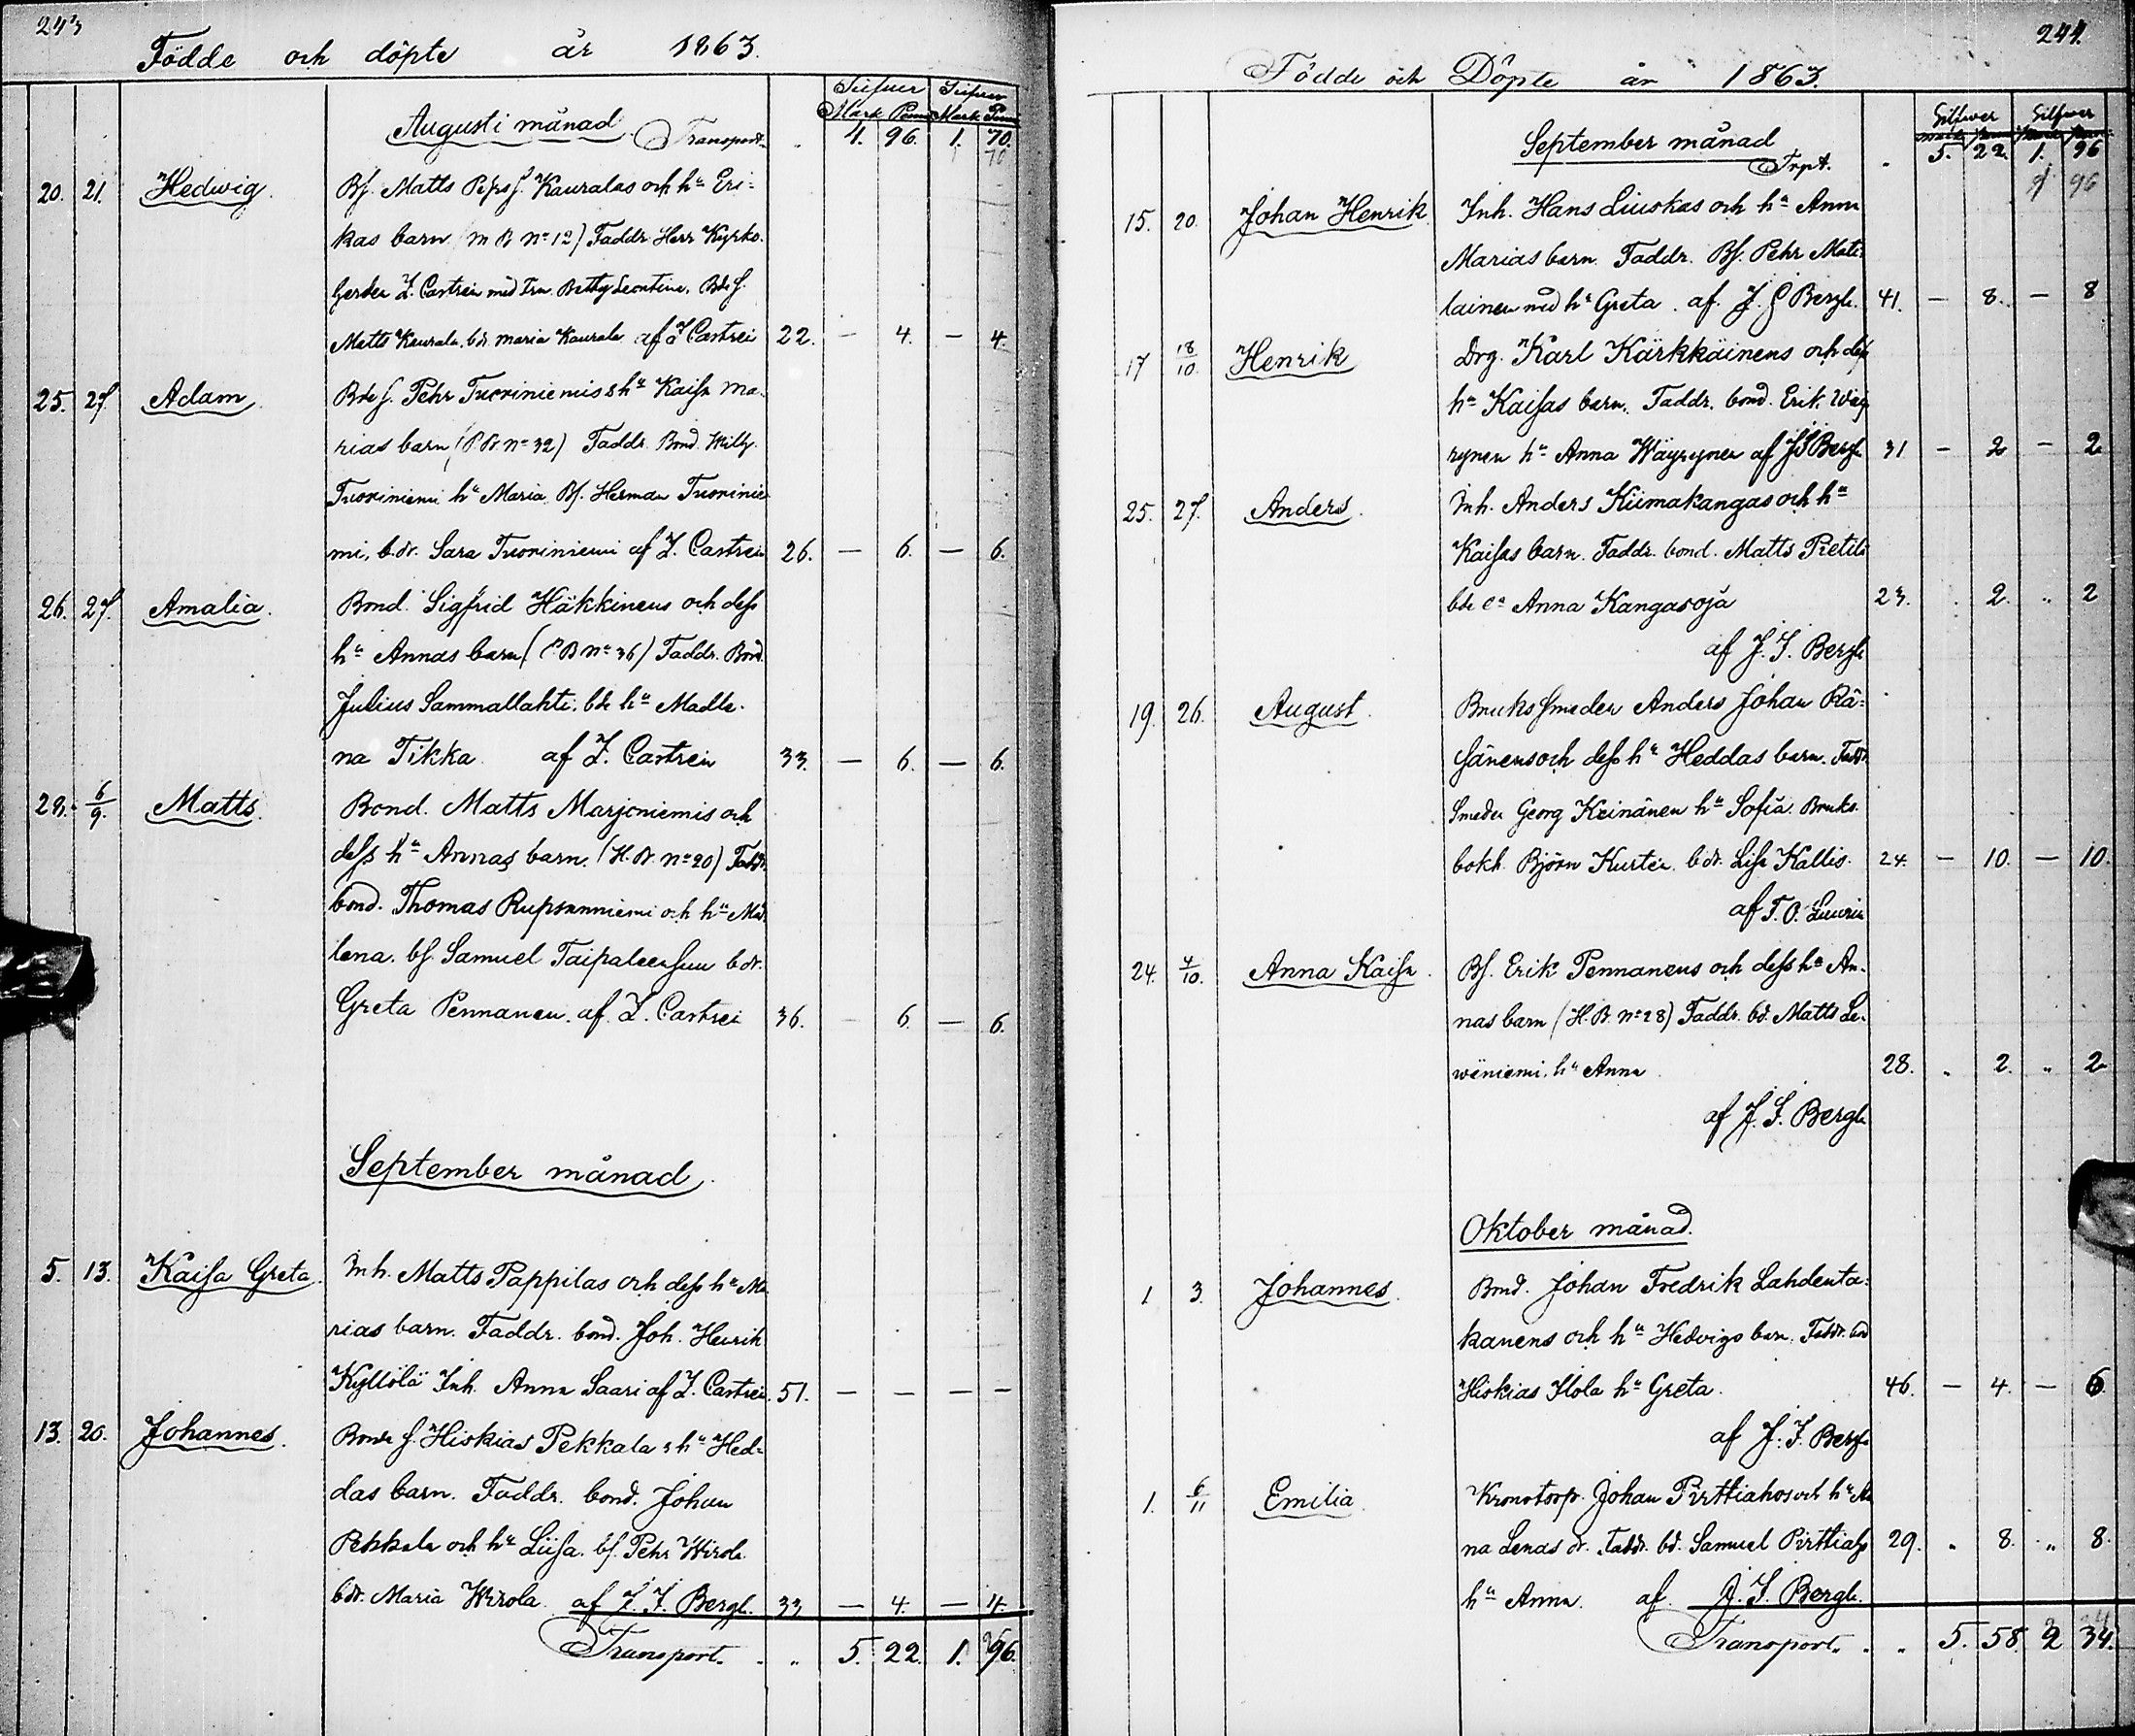 243
Födde och döpte år 1863.
Silfver Silfver
Mark Penni Mark Penni
Augusti månad Transport 4. 96. 1. 70.
70
20. 21. Hedwig. Bs. Matts Pehrs. Kauralas och hu Eri-
kas barn (M B No 12) Faddr. Herr Kyrko-
herden Z. Castrén med Fru Betty Leontine. Bde s.
Matts Kaurala. bdr. Maria Kaurala af Z Castrén 22. — 4. — 4.
25. 27. Adam. Bde s. Pehr Tuoriniemis & hu Kaisa Ma-
rias barn (P. B. No 32) Faddr. Bond. Wilh.
Tuoriniemi hu Maria Bs. Herman Tuorinie
mi, b.dr. Sara Tuoriniemi af Z. Castrén 26. — 6. — 6.
26. 27. Amalia. Bond. Sigfrid Häkkinens och dess
hu Annas barn (P B No 36) Faddr. Bond.
Julius Sammallahti. bde hu Madle-
na Tikka af Z. Castrén 33. — 6. — 6.
28. 6/9. Matts. Bond. Matts Marjoniemis och
dess hu Annas barn. (H. B. No 20) Faddr.
bond. Thomas Rupsunniemi och hu Mad.
lena. bs. Samuel Taipaleensuu bdr.
Greta Pennanen. af Z. Castrén 36. — 6. — 6.
September månad.
5. 13. Kaisa Greta. Inh. Matts Pappilas och dess hu Ma
rias barn. Faddr. bond. Joh. Henrik
Kyllölä Inh. Anna Saari af Z. Castrén. 51. — — — —
13. 20. Johannes. Bonde s. Hiskias Pekkala & hu Hed-
das barn. Faddr. bond. Johan
Pekkala och hu Liisa. bs. Pehr Wirola
bdr. Maria Wirola af J. F. Bergh. 33 — 4. — 4.
Transport. . „ 5. 22. 1. 96.
244.
Födde och Döpte år 1863.
Silfver Silfver
September månad
Trpt. „ 5. 22. 1. 96
96
15. 20. Johan Henrik Inh. Hans Liuskas och hu Anna
Marias barn. Faddr. Bs. Pehr Mati
lainen med hu Greta. af J. F Bergh. 41. — 8. — 8
17 18/10. Henrik Drg. Karl Kärkkäinens och dess
hu Kaisas barn. Faddr. bond. Erik Wäy
rynen hu Anna Wäyrynen af J F Bergh 31 — 2 — 2
25. 27. Anders. Inh. Anders Kiimakangas och hu
Kaisas barn. Faddr. bond. Matts Pietilä
bde Anna Kangasoja 23. . 2. „ 2
af J. F. Bergh
19. 26. August. Bruks Smeden Anders Johan Rä-
sänens och dess hu Heddas barn. Faddr.
Smeden Georg Keinänen hu Sofia. Bruks
bokh. Björn Kurtén. bdr. Lisa Kallis. 24. — 10. — 10.
af T. O.
24. 4/10. Anna Kaisa. Bs. Erik Pennanens och dess hu An-
nas barn (H. B. No 28) Faddr. bd. Matts Le-
wäniemi. hu Anna 28. „ 2. „ 2
af J. F. Bergh
Oktober månad.
1 3. Johannes. Bond. Johan Fredrik Lahdenta-
kanens och hu Hedvigs barn. Faddr. bd
Hiskias Ilola hu Greta. 46. — 4. — 6.
af J. F. Bergh
1. 6/11 Emilia. Kronotorp. Johan Pirttiahos och hu An
na Lenas dr. Faddr. bd. Samuel Pirttiaho 29. „ 8. „ 8.
hu Anna. af J. F. Bergh.
Transport. . „ 5. 58. 2 34.